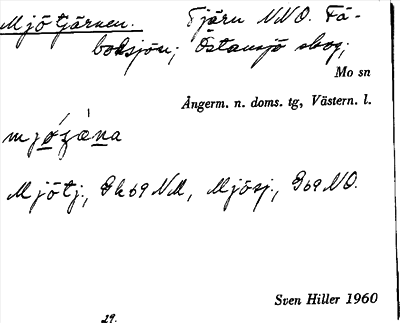 Mjötjärnen. Tjärn NNO. Få-
boksjön; Östansjö sbog;
Mo sn
Ångerm. n. doms. tg, Västern. l.
Mjötj., Gk 69 NV, Mjösj., G69 NO.
Sven Hiller 1960
29.